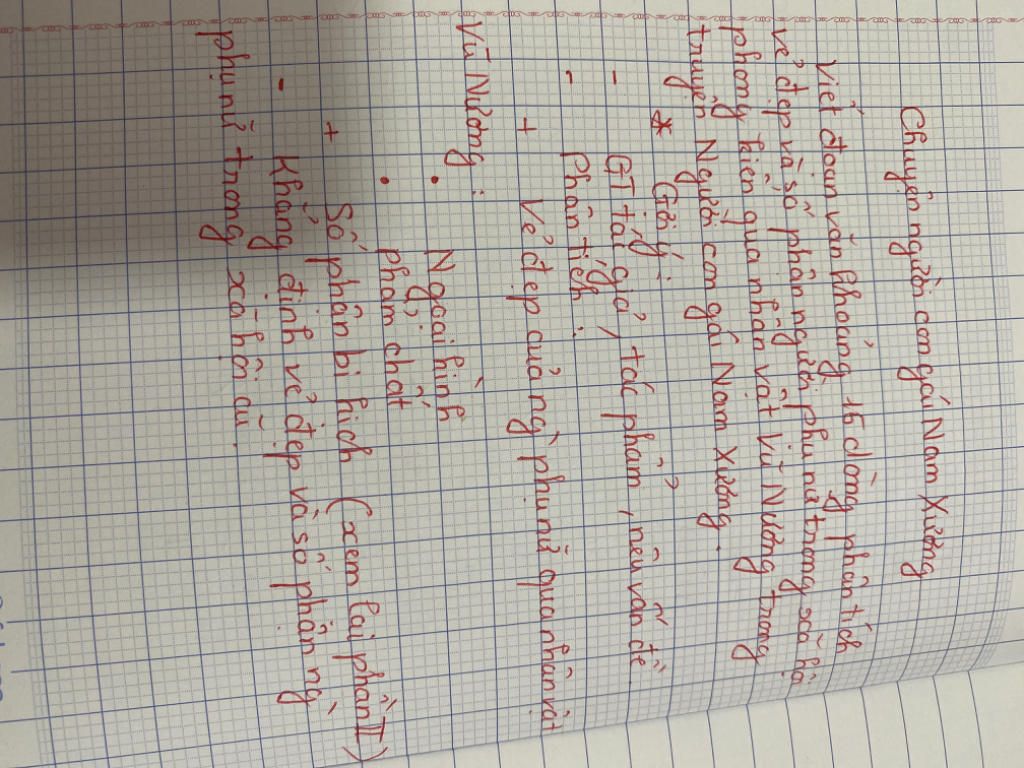 Chuyện người con gái Nam Xương
Viết đoạn văn khoảng 15 dòng phân tích
vẻ đẹp và số phận người phụ nữ trong xã hội
phong kiến qua nhân vật Vũ Nương trong
truyện Người con gái Nam Xương.
* Gợi ý:
- GT tác giả, tác phẩm, nêu vấn đề
- Phân tích:
+ Vẻ đẹp của ng` phụ nữ qua nhân vật
Vũ Nương:
• Ngoại hình
• phẩm chất
+ Số phận bi kịch (xem lại phần II)
- Khẳng định vẻ đẹp và số phận ng`
phụ nữ trong xã hội cũ.